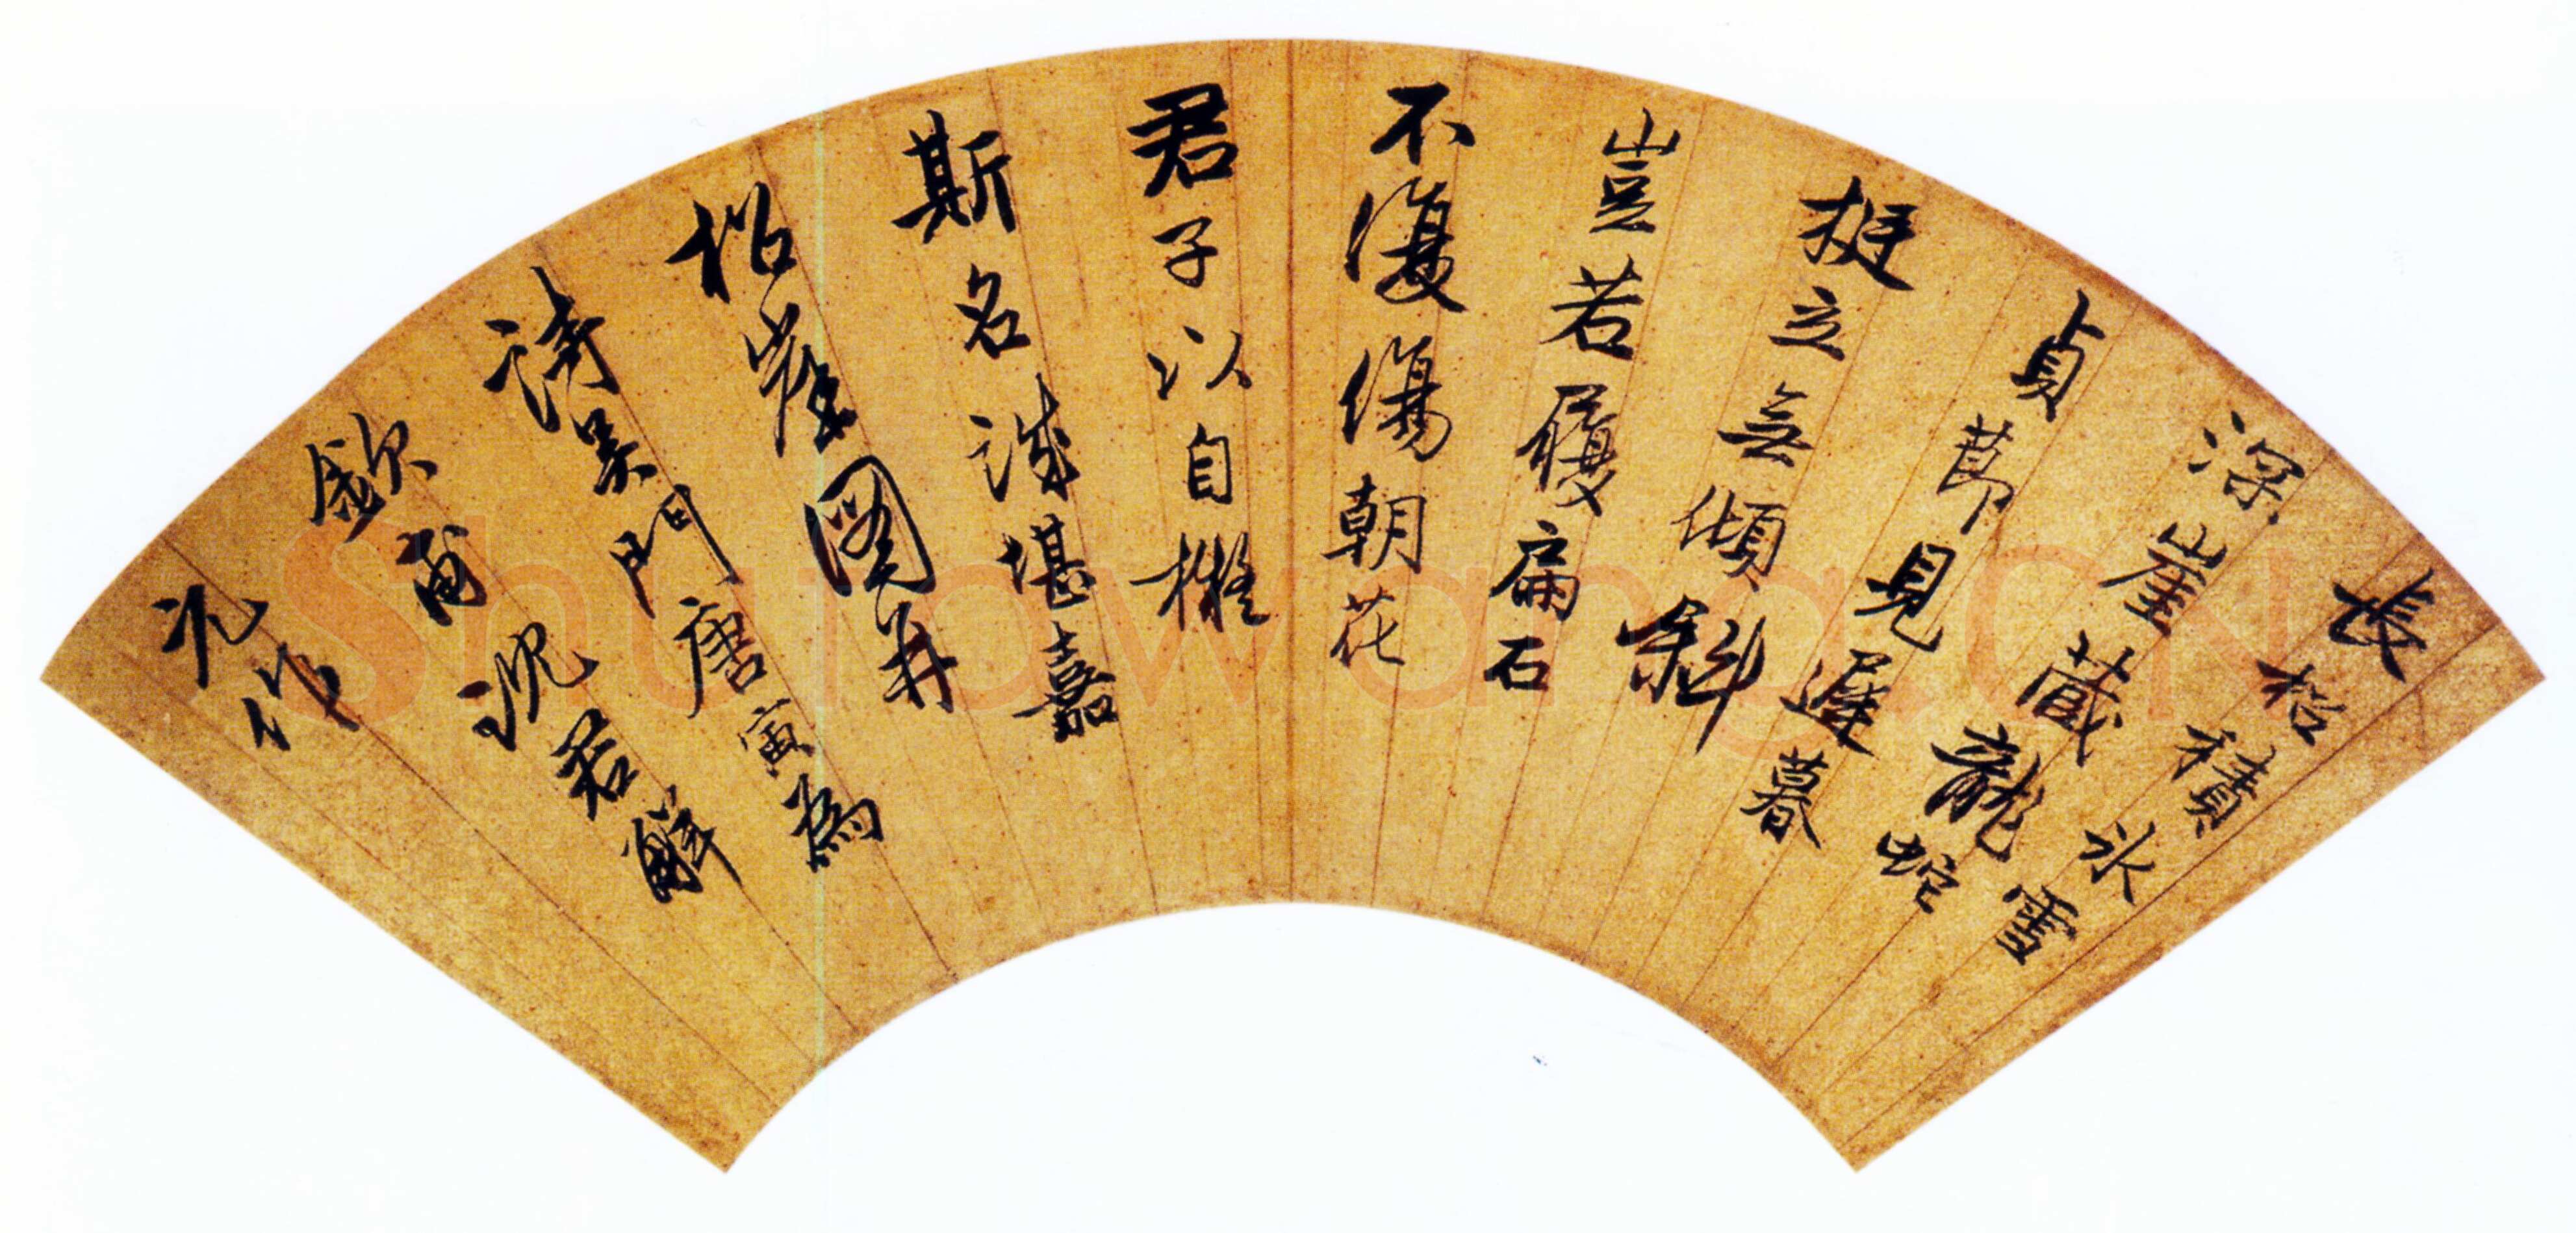 長松積氷雪
深崖藏龍蛇
貞節見遲暮
挺立無傾斜
豈若履扁石
不復傷朝花
君子以自擬
斯名誠堪嘉
松崖圖并
詩吳門唐寅為
欽甫沈君解
元作
Shufawang.CN